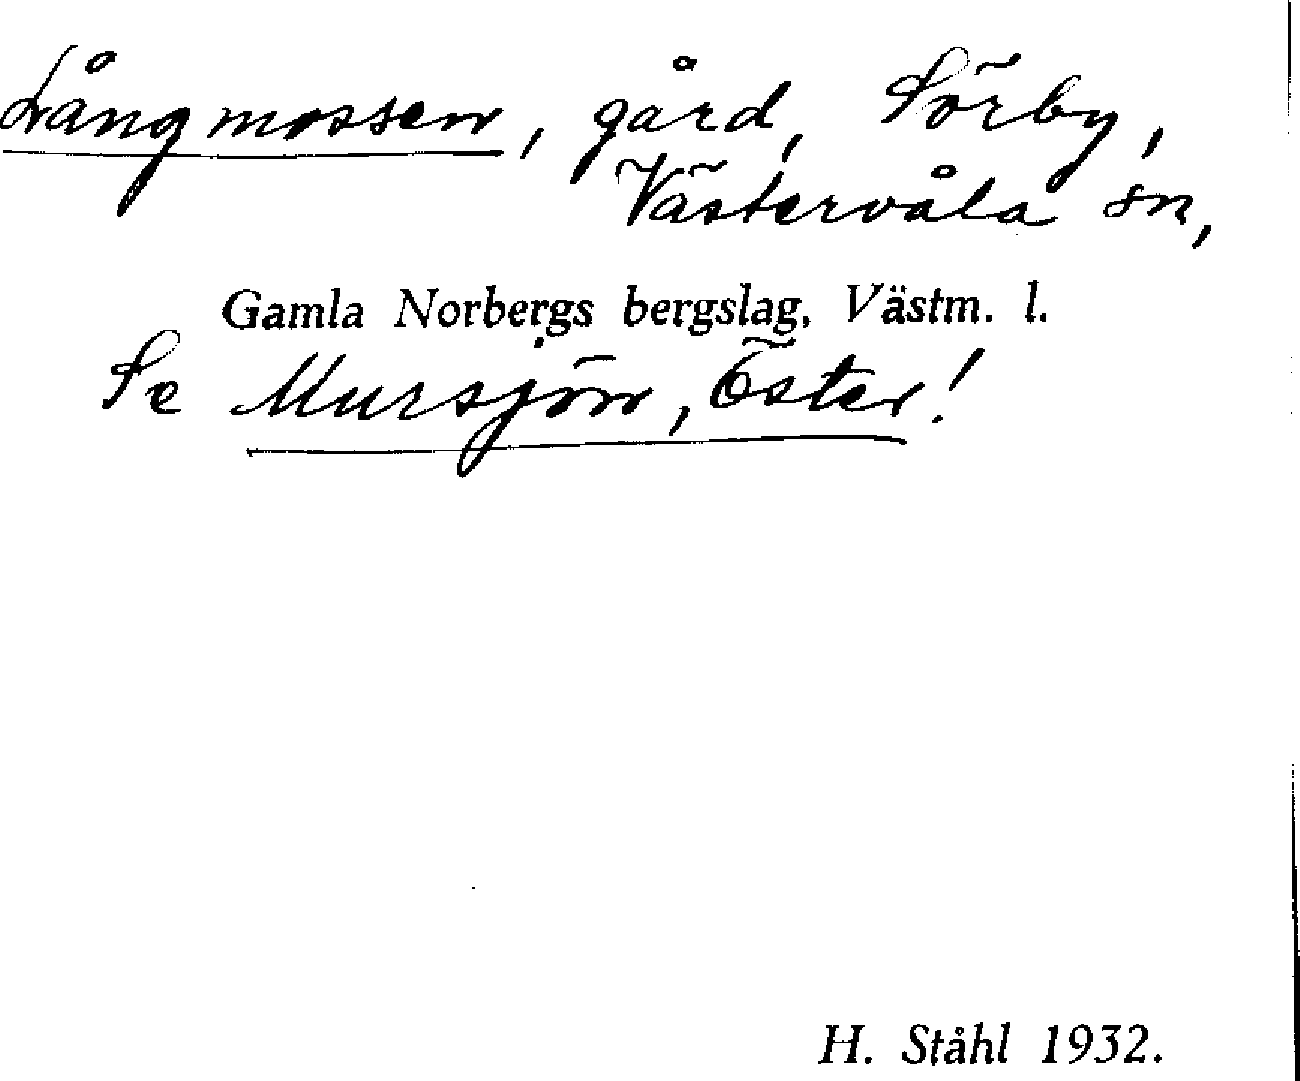 Långmossen, gård, Sörby,
Västervåla sn,
Gamla Norbergs bergslag, Västm. l.
Se Mursjön, Öster!
H. Ståhl 1932.